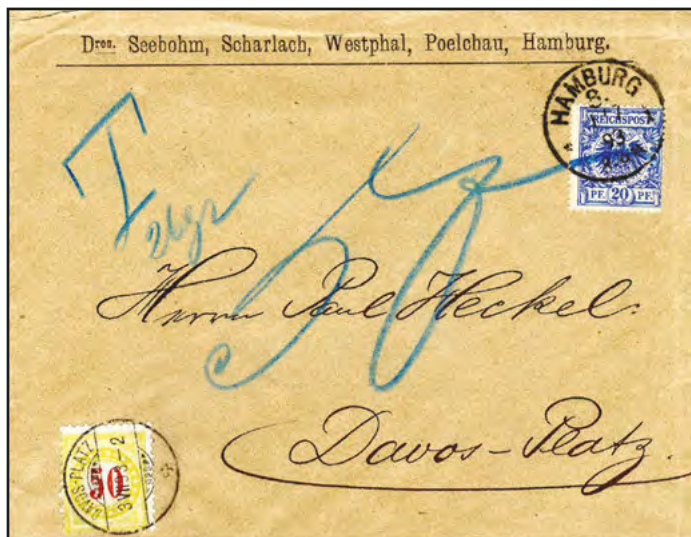 Dres. Seebohm, Scharlach, Westphal, Poelchau, Hamburg.
HAMBURG
1
93
REICHSPOST
PF. 20 PF.
T
50
Herrn Paul Heckel.
Davos-Platz.
DAVOS-PLATZ
50